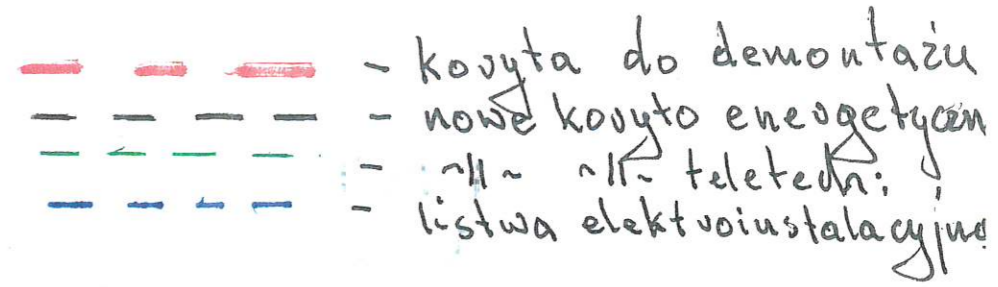 - koryta do demontażu
- nowe koryto energetyczn
- ~||~ ~||~ teletechn.
- listwa elektroinstalacyjna